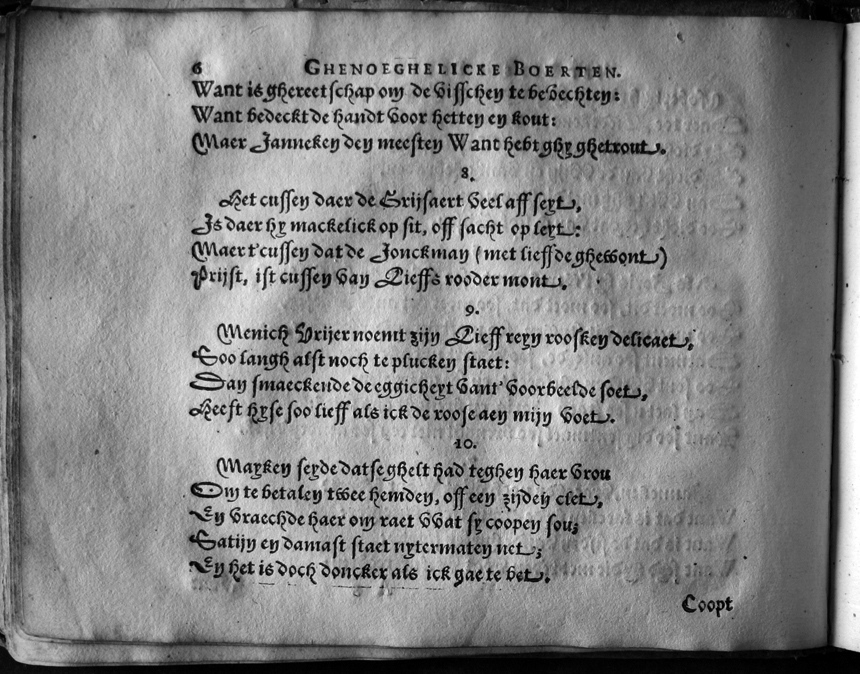 6 GHENOEGHELICKE BOERTEN.
Want is ghereetschap om de visschen te bevechten:
Want bedeckt de handt voor hetten en kout:
Maer Janneken den meesten Want hebt ghy ghetrout.
8.
Het cussen daer de Grijsaert veel aff seyt,
Is daer hy mackelick op sit, off sacht op leyt:
Maer t'cussen dat de Jonckman (met lieffde ghewont)
Prijst, ist cussen van Lieffs rooder mont.
9.
Menich Vrijer noemt zijn Lieff reyn roosken delicaet,
Soo langh alst noch te plucken staet:
Dan smaeckende de eggicheyt vant' voorbeelde soet,
Heeft hyse soo lieff als ick de roose aen mijn voet.
10.
Mayken seyde datse ghelt had teghen haer vrou
Om te betalen twee hemden, off een zijden clet,
En vraechde haer om raet wat sy coopen sou;
Satijn en damast staet uytermaten net;
En het is doch doncker als ick gae te bet.
Coopt